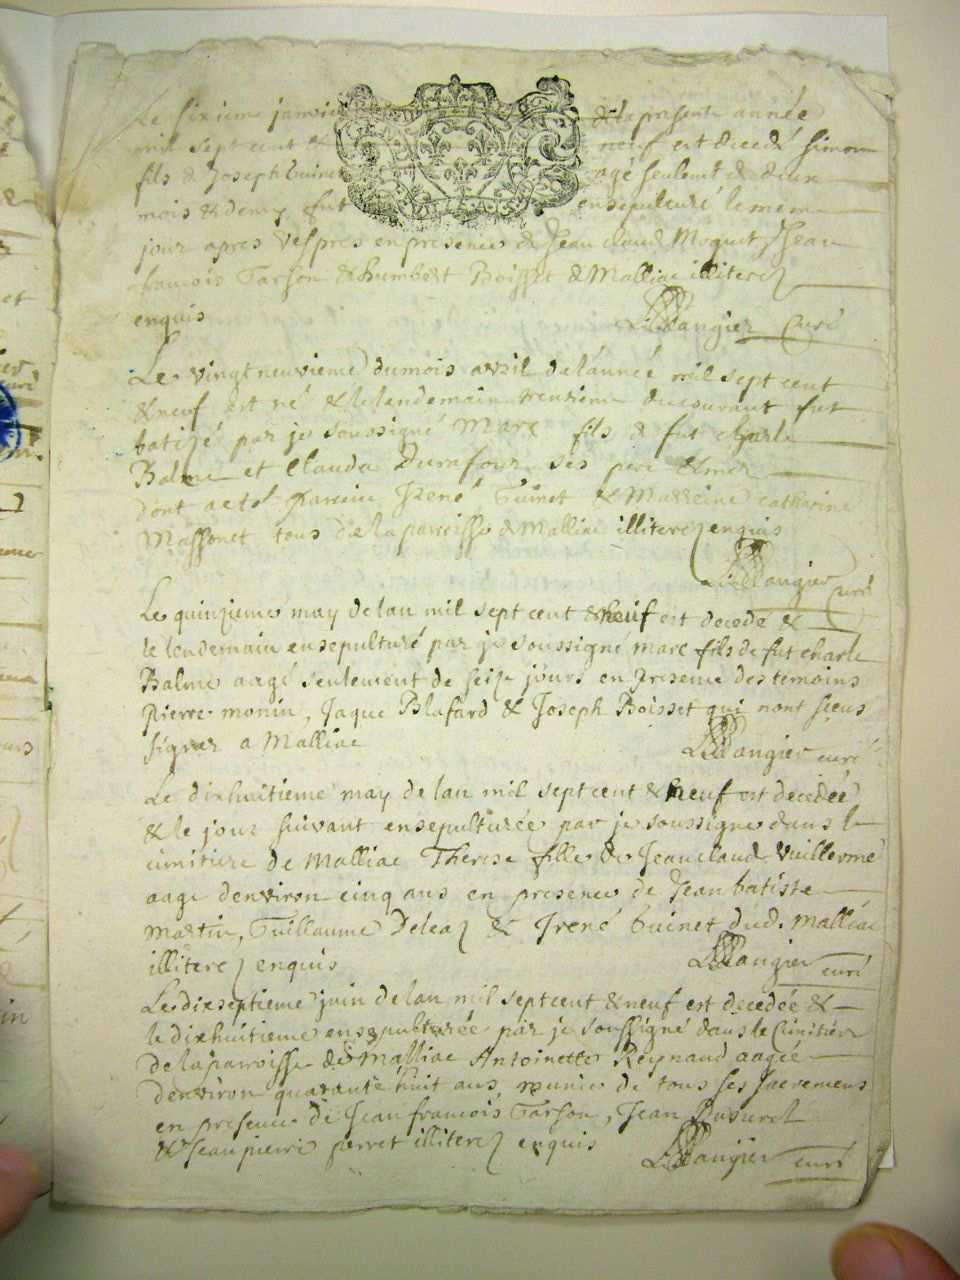 Le sixieme janvier de la presente année
mil sept cent & neuf est decedé simon
fils de Joseph Guinet agé seulemt de deux
mois & demy fut ensepulturé le mem
jour apres vespres en presence de Jean Claud Moquet, Jean
francois & humbert Boisset de Malliac illiterez
enquis Curé
Le vingtneuvieme du mois avril de lannée mil sept cent
& neuf est né & le lendemain trentieme du courant fut
batizé par je soussigné Marc fils de fut Charle
Balme et Clauda Durafour ses pere & mere
dont a eté parrein Irené Guinet & Marreine catharine
Massonet tous de la parroisse de Malliac illiterez enquis
curé
Le quinzieme may de lan mil sept cent & neuf est decedé &
le lendemain ensepulturé par je soussigné marc fils de fut charle
Balme aagé seulement de seize jours en presence des temoins
Pierre monin, Jaque Blafard & Joseph Boisset qui nont sceus
signer a Malliac curé
Le dixhuitieme may de lan mil sept cent & neuf est decedée
& le jour suivant ensepulturée par je soussigné dans le
cimitiere de Malliac Therese fille de Jean claud Vuillerme
aage denviron cinq ans en presence de Jean batiste
Martin, Guillaume & Irené Guinet dud. Malliac
illiterez enquis curé
Le dixseptieme juin de lan mil sept cent & neuf est decedée &
le dixhuitieme ensepulturée par je soussigné dans le Cimitiere
de la parroisse de Malliac Antoinette Reynaud aagée
denviron quarante huit ans, munie de tous ses sacremens
en presence de Jean francois, Jean
& Jean pierre perret illiterez enquis
curé